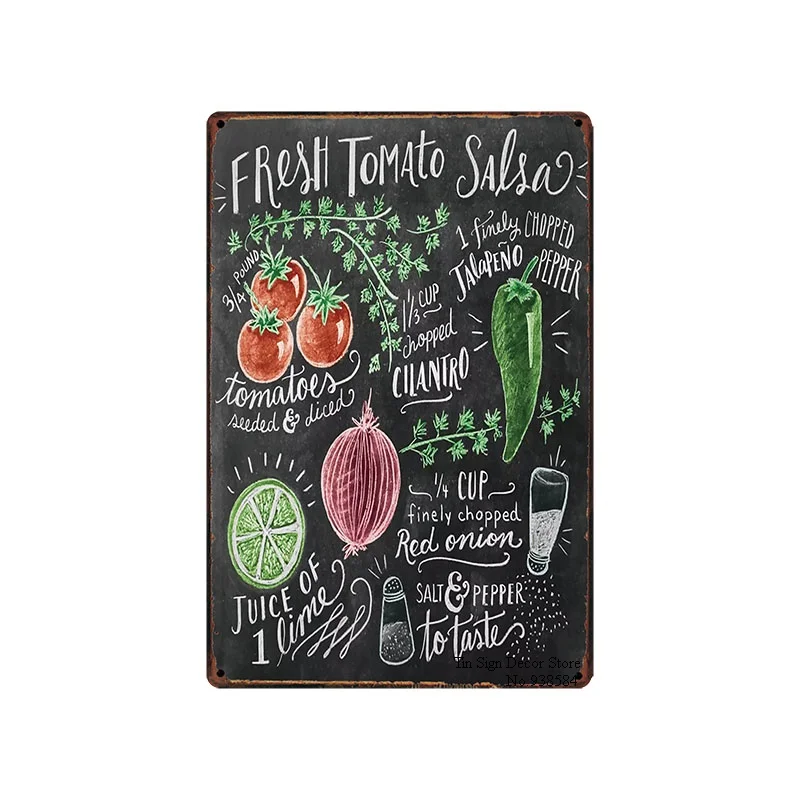 FRESH TOMATO SALSA
3/4 POUND
tomatoes
seeded & diced
1/3 CUP
chopped
CILANTRO
1 finely CHOPPED
JALAPEÑO PEPPER
1/4 CUP
finely chopped
Red onion
JUICE OF
1 lime
SALT & PEPPER
to taste
Tin Sign Decor Store
No.938584